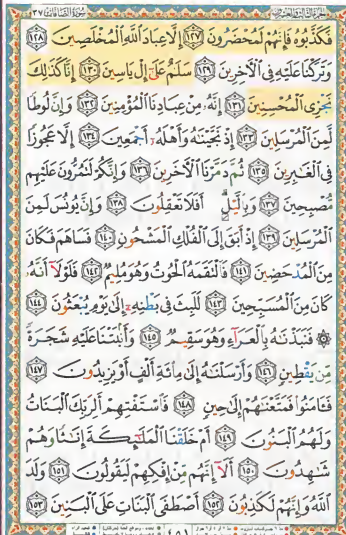 سورة الصافات ٣٧
فَكَذَّبُوهُ فَإِنَّهُمْ لَمُحْضَرُونَ ١٢٧ إِلَّا عِبَادَ اللَّهِ الْمُخْلَصِينَ ١٢٨
وَتَرَكْنَا عَلَيْهِ فِي الْآخِرِينَ ١٢٩ سَلَامٌ عَلَىٰ إِلْ يَاسِينَ ١٣٠ إِنَّا كَذَٰلِكَ
نَجْزِي الْمُحْسِنِينَ ١٣١ إِنَّهُ مِنْ عِبَادِنَا الْمُؤْمِنِينَ ١٣٢ وَإِنَّ لُوطًا
لَّمِنَ الْمُرْسَلِينَ ١٣٣ إِذْ نَجَّيْنَاهُ وَأَهْلَهُ أَجْمَعِينَ ١٣٤ إِلَّا عَجُوزًا
فِي الْغَابِرِينَ ١٣٥ ثُمَّ دَمَّرْنَا الْآخَرِينَ ١٣٦ وَإِنَّكُمْ لَتَمُرُّونَ عَلَيْهِم
مُّصْبِحِينَ ١٣٧ وَبِاللَّيْلِ أَفَلَا تَعْقِلُونَ ١٣٨ وَإِنَّ يُونُسَ لَمِنَ
الْمُرْسَلِينَ ١٣٩ إِذْ أَبَقَ إِلَى الْفُلْكِ الْمَشْحُونِ ١٤٠ فَسَاهَمَ فَكَانَ
مِنَ الْمُدْحَضِينَ ١٤١ فَالْتَقَمَهُ الْحُوتُ وَهُوَ مُلِيمٌ ١٤٢ فَلَوْلَا أَنَّهُ
كَانَ مِنَ الْمُسَبِّحِينَ ١٤٣ لَلَبِثَ فِي بَطْنِهِ إِلَىٰ يَوْمِ يُبْعَثُونَ ١٤٤
۞ فَنَبَذْنَاهُ بِالْعَرَاءِ وَهُوَ سَقِيمٌ ١٤٥ وَأَنبَتْنَا عَلَيْهِ شَجَرَةً
مِّن يَقْطِينٍ ١٤٦ وَأَرْسَلْنَاهُ إِلَىٰ مِائَةِ أَلْفٍ أَوْ يَزِيدُونَ ١٤٧
فَآمَنُوا فَمَتَّعْنَاهُمْ إِلَىٰ حِينٍ ١٤٨ فَاسْتَفْتِهِمْ أَلِرَبِّكَ الْبَنَاتُ
وَلَهُمُ الْبَنُونَ ١٤٩ أَمْ خَلَقْنَا الْمَلَائِكَةَ إِنَاثًا وَهُمْ
شَاهِدُونَ ١٥٠ أَلَا إِنَّهُم مِّنْ إِفْكِهِمْ لَيَقُولُونَ ١٥١ وَلَدَ
اللَّهُ وَإِنَّهُمْ لَكَاذِبُونَ ١٥٢ أَصْطَفَى الْبَنَاتِ عَلَى الْبَنِينَ ١٥٣
٤٥١